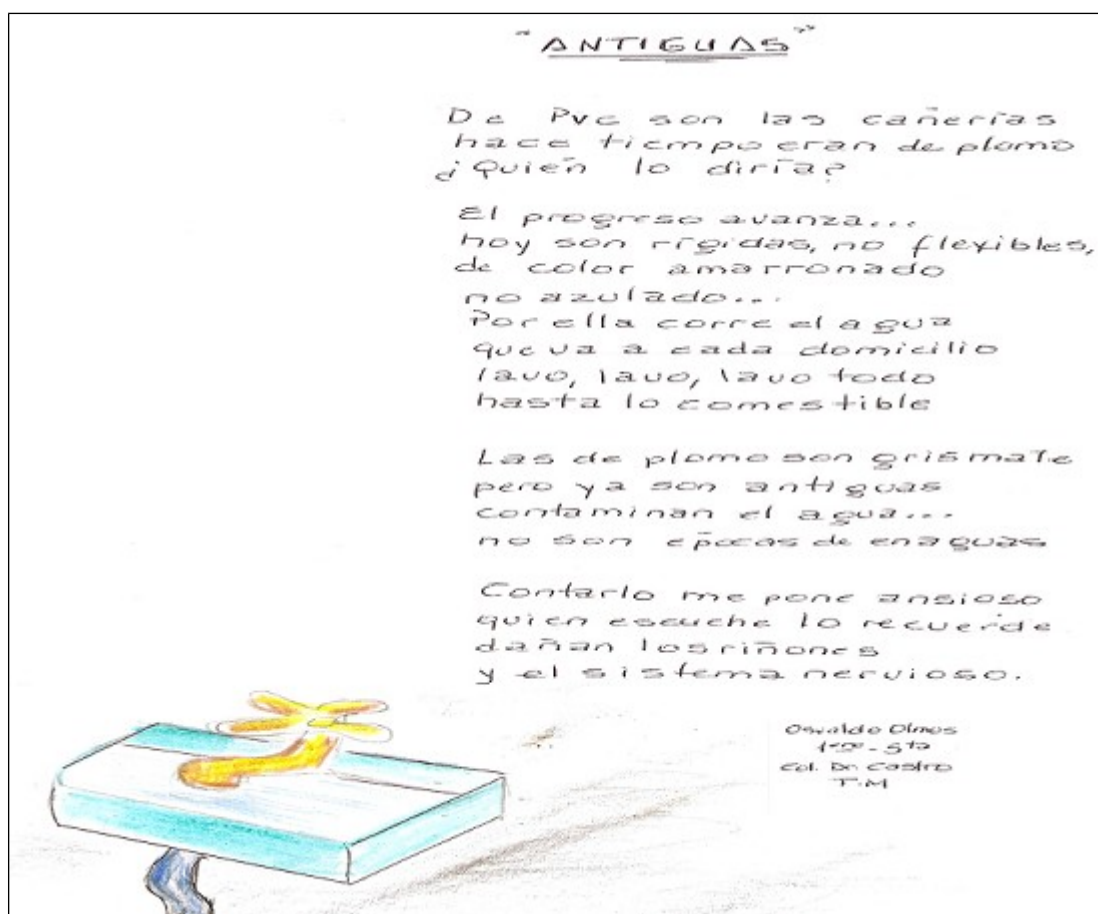 "ANTIGUAS"
De Pvc son las cañerías
hace tiempo eran de plomo
¿Quién lo diría?
El progreso avanza...
hoy son rígidas, no flexibles,
de color amarronado
no azulado...
Por ella corre el agua
que va a cada domicilio
lavo, lavo, lavo todo
hasta lo comestible
Las de plomo son gris mate
pero ya son antiguas
contaminan el agua...
no son épocas de enaguas
Contarlo me pone ansioso
quien escuche lo recuerde
dañan los riñones
y el sistema nervioso.
Osvaldo Olmos
1ero - 5ta
Col. Dr. Castro
T.M